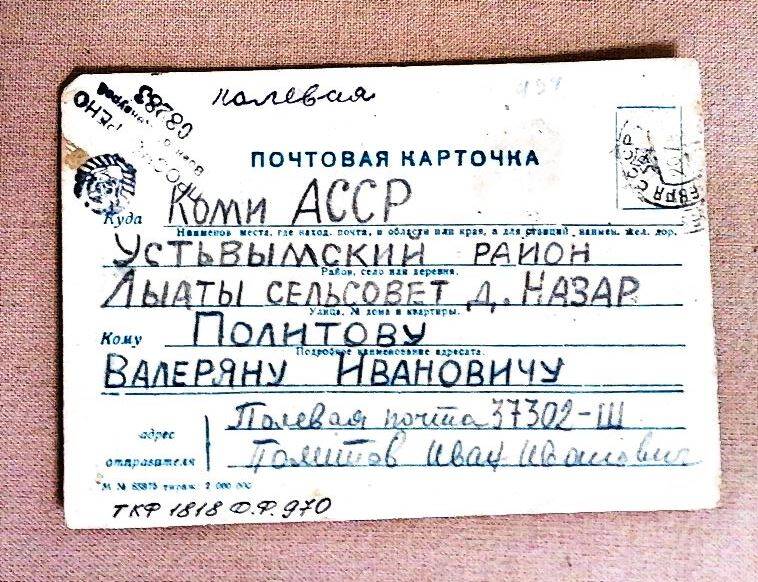 полевая
ПРОСМОТРЕНО
03283
ПОЧТОВАЯ КАРТОЧКА
Куда Коми АССР
Наименов места, где наход. почта, и области или края, а для станций, наимен. жел. дор.
УСТЬВЫМСКИЙ РАЙОН
Район, село или деревня.
ЛЫАТЫ СЕЛЬСОВЕТ Д. НАЗАР
Улица, № дома и квартиры.
Кому ПОЛИТОВУ
Подробное наименование адресата.
ВАЛЕРЯНУ ИВАНОВИЧУ
адрес отправителя
Полевая почта 37302-Ш
Политов Иван Иванович
ТКФ 1818 Д.Ф. 970